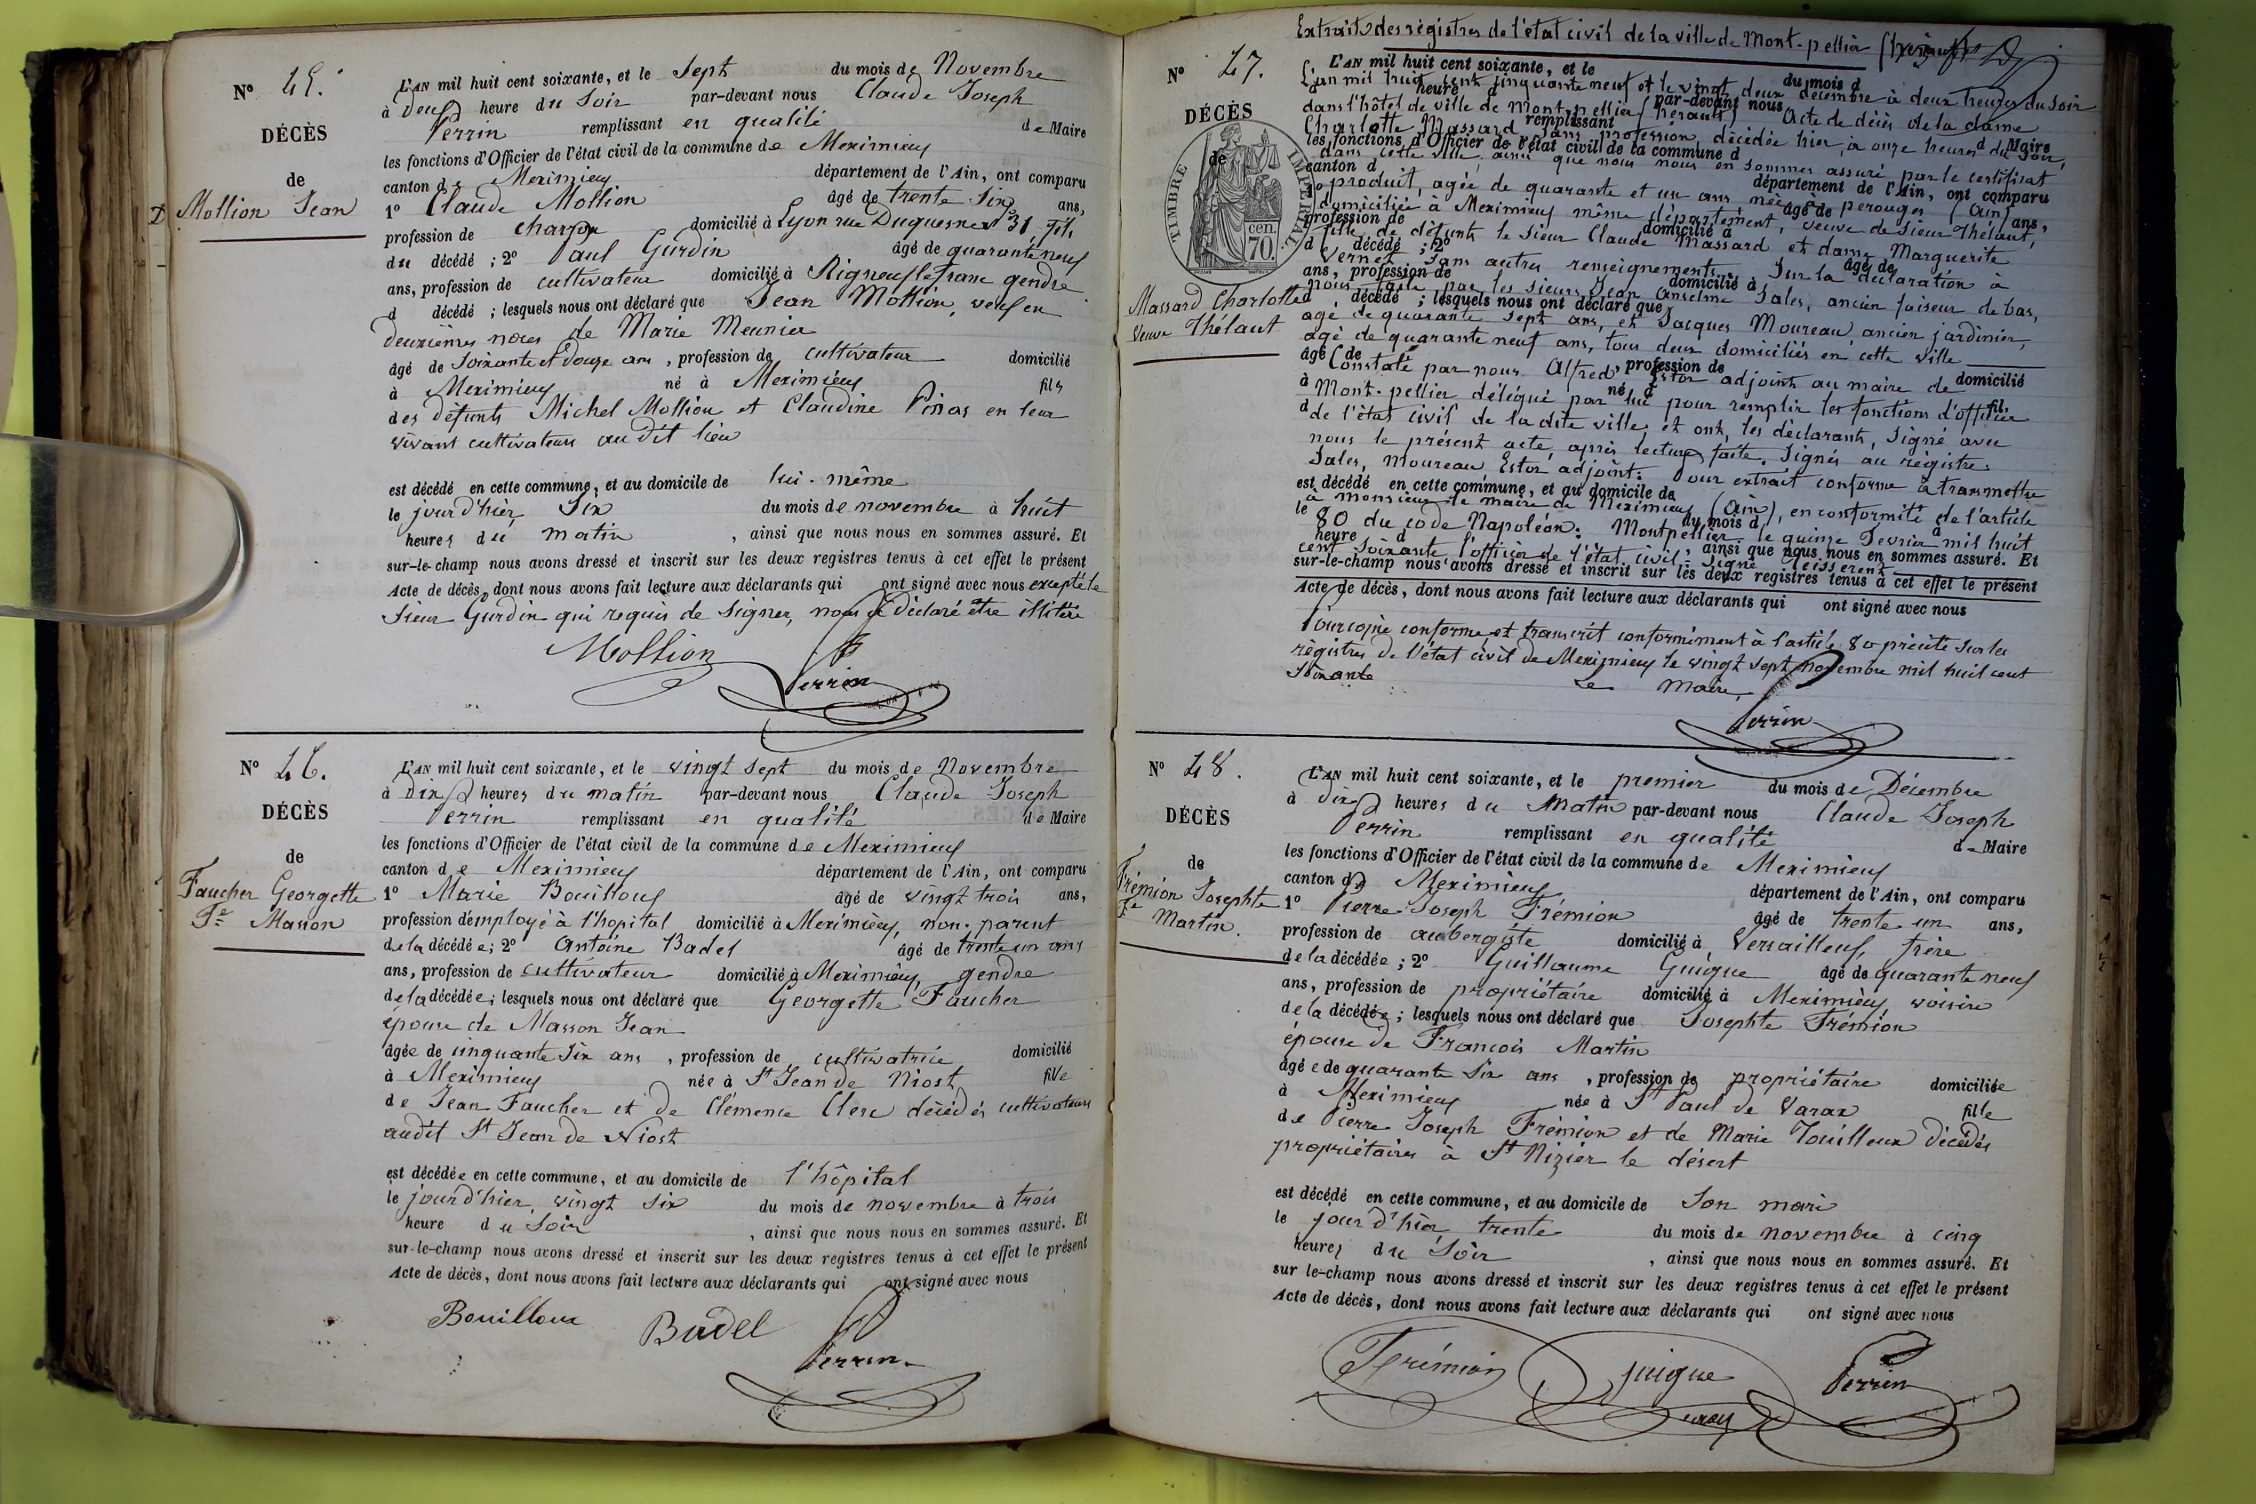 N° 45.
DÉCÈS
de
Mollion Jean
L'AN mil huit cent soixante, et le Sept du mois de Novembre
à deux heure du Soir par-devant nous Claude Joseph
Perrin remplissant en qualité de Maire
les fonctions d'Officier de l'état civil de la commune de Meximieux
canton de Meximieux département de l'Ain, ont comparu
1° Claude Mollion âgé de trente Six ans,
profession de charron domicilié à Lyon rue Duguesne n° 31 fils
du décédé ; 2° Paul Gurdin âgé de quarante neuf
ans, profession de cultivateur domicilié à Rigneux le franc gendre
d décédé ; lesquels nous ont déclaré que Jean Mollion, veuf en
deuxièmes noces de Marie Meunier
âgé de Soixante et douze ans , profession de cultivateur domicilié
à Meximieux né à Meximieux fils
des défunts Michel Mollion et Claudine Pinas en leur
vivant cultivateurs au dit lieu
est décédé en cette commune, et au domicile de lui-même
le jourd'hier Six du mois de novembre à huit
heures du matin , ainsi que nous nous en sommes assuré. Et
sur-le-champ nous avons dressé et inscrit sur les deux registres tenus à cet effet le présent
Acte de décès, dont nous avons fait lecture aux déclarants qui ont signé avec nous excepté le
Sieur Gurdin qui requis de signer, nous a déclaré être illitéré
Mollion Perrin
N° 46.
DÉCÈS
de
Faucher Georgette
Fe Masson
L'AN mil huit cent soixante, et le vingt sept du mois de Novembre
à dix heures du matin par-devant nous Claude Joseph
Perrin remplissant en qualité de Maire
les fonctions d'Officier de l'état civil de la commune de Meximieux
canton de Meximieux département de l'Ain, ont comparu
1° Marie Bouilloux âgé de vingt trois ans,
profession d'employé à l'hopital domicilié à Meximieux, non parent
de la décédée; 2° Antoine Badel âgé de trente un ans
ans, profession de cultivateur domicilié à Meximieux, gendre
de la décédée; lesquels nous ont déclaré que Georgette Faucher
épouse de Masson Jean
âgée de cinquante Six ans , profession de cultivatrice domicilié
à Meximieux née à St Jean de Niost fille
de Jean Faucher et de Clémence Clerc décédés cultivateurs
audit St Jean de Niost
est décédée en cette commune, et au domicile de l'hôpital
le jourd'hier vingt six du mois de novembre à trois
heure du Soir , ainsi que nous nous en sommes assuré. Et
sur-le-champ nous avons dressé et inscrit sur les deux registres tenus à cet effet le présent
Acte de décès, dont nous avons fait lecture aux déclarants qui ont signé avec nous
Bouilloux Badel Perrin
Extrait des régistres de l'état civil de la ville de Mont-pellier
N° 47.
DÉCÈS
de
TIMBRE IMPÉRIAL
70 cen.
Massard Charlotte
Veuve Thélaut
L'AN mil huit cent soixante, et le du mois d
L'an mil huit cent cinquante neuf et le vingt deux décembre à deux heures du soir
heure par-devant nous
dans l'hôtel de ville de Mont-pellier (hérault) Acte de décès de la dame
remplissant d Maire
Charlotte Massard sans profession, décédée hier, à onze heures du soir,
les fonctions d'Officier de l'état civil de la commune d
dans cette ville, ainsi que nous nous en sommes assuré par le certificat
canton d département de l'Ain, ont comparu
produit, agée de quarante et un ans née à perouges (Ain)
1° âgé de ans,
domiciliée à Meximieux même département, veuve de Sieur Thélaut,
profession de domicilié à
fille de défunts le Sieur Claude Massard et dame Marguerite
d décédé ; 2° âgé de
Vernet sans autres renseignements. Sur la déclaration à
ans, profession de domicilié à
nous faite par les Sieurs Jean Anselme Sales, ancien faiseur de bas,
d décédé ; lesquels nous ont déclaré que
agé de quarante Sept ans, et Jacques Moureau ancien jardinier,
agé de quarante neuf ans, tous deux domiciliés en cette ville
âgé de , profession de domicilié
Constaté par nous Alfred Estor adjoint au maire de
à né à fil
Mont-pellier délégué par lui pour remplir les fonctions d'officier
d
de l'état civil de la dite ville et ont, les déclarants, signé avec
nous le présent acte, après lecture faite. Signés au régistre:
Sales, Moureau Estor adjoint: Pour extrait conforme à transmettre
est décédé en cette commune, et au domicile de
à monsieur le maire de Meximieux (Ain), en conformité de l'article
le du mois d à
80 du code Napoléon: Montpellier le quinze Fevrier mil huit
heure d , ainsi que nous nous en sommes assuré. Et
cent Soixante l'officier de l'état civil: Signé Teisserenc
sur-le-champ nous avons dressé et inscrit sur les deux registres tenus à cet effet le présent
Acte de décès, dont nous avons fait lecture aux déclarants qui ont signé avec nous
Pour copie conforme et transcrit conformément à l'article 80 précité sur les
régistres de l'état civil de Meximieux le vingt sept novembre mil huit cent
soixante Le Maire,
Perrin
N° 48.
DÉCÈS
de
Frémion Josephte
Fe Martin.
L'AN mil huit cent soixante, et le premier du mois de Décembre
à dix heures du Matin par-devant nous Claude Joseph
Perrin remplissant en qualité de Maire
les fonctions d'Officier de l'état civil de la commune de Meximieux
canton de Meximieux département de l'Ain, ont comparu
1° Pierre Joseph Frémion âgé de trente un ans,
profession de aubergiste domicilié à Versailleux, frère
de la décédée ; 2° Guillaume Guigue âgé de quarante neuf
ans, profession de propriétaire domicilié à Meximieux voisin
de la décédée ; lesquels nous ont déclaré que Josephte Frémion
épouse de François Martin
âgée de quarante Six ans , profession de propriétaire domiciliée
à Meximieux née à St Paul de Varax fille
de Pierre Joseph Frémion et de Marie Touilleux décédés
propriétaires à St Nizier le désert
est décédé en cette commune, et au domicile de Son mari
le jour d'hier trente du mois de novembre à cinq
heures du Soir , ainsi que nous nous en sommes assuré. Et
sur le-champ nous avons dressé et inscrit sur les deux registres tenus à cet effet le présent
Acte de décès, dont nous avons fait lecture aux déclarants qui ont signé avec nous
Frémion Guigue Perrin